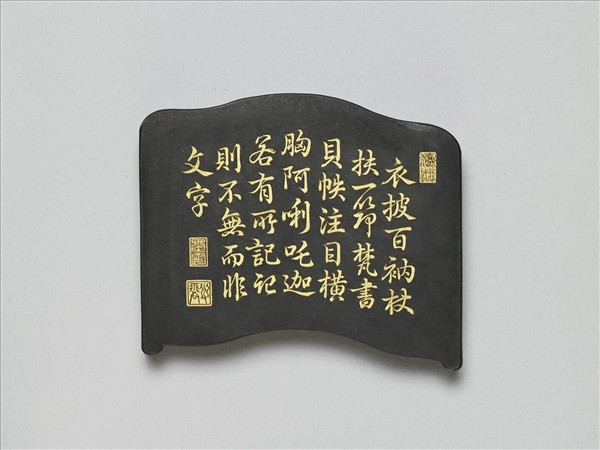 衣披百衲杖
扶一筇梵書
貝帙注目橫
胸阿唎吒迦
若有所記記
則不無而非
文字